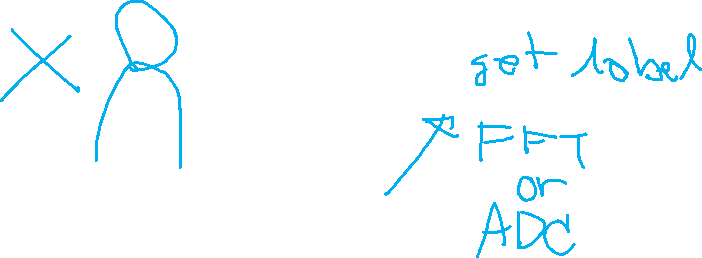 get label
FFT
or
ADC